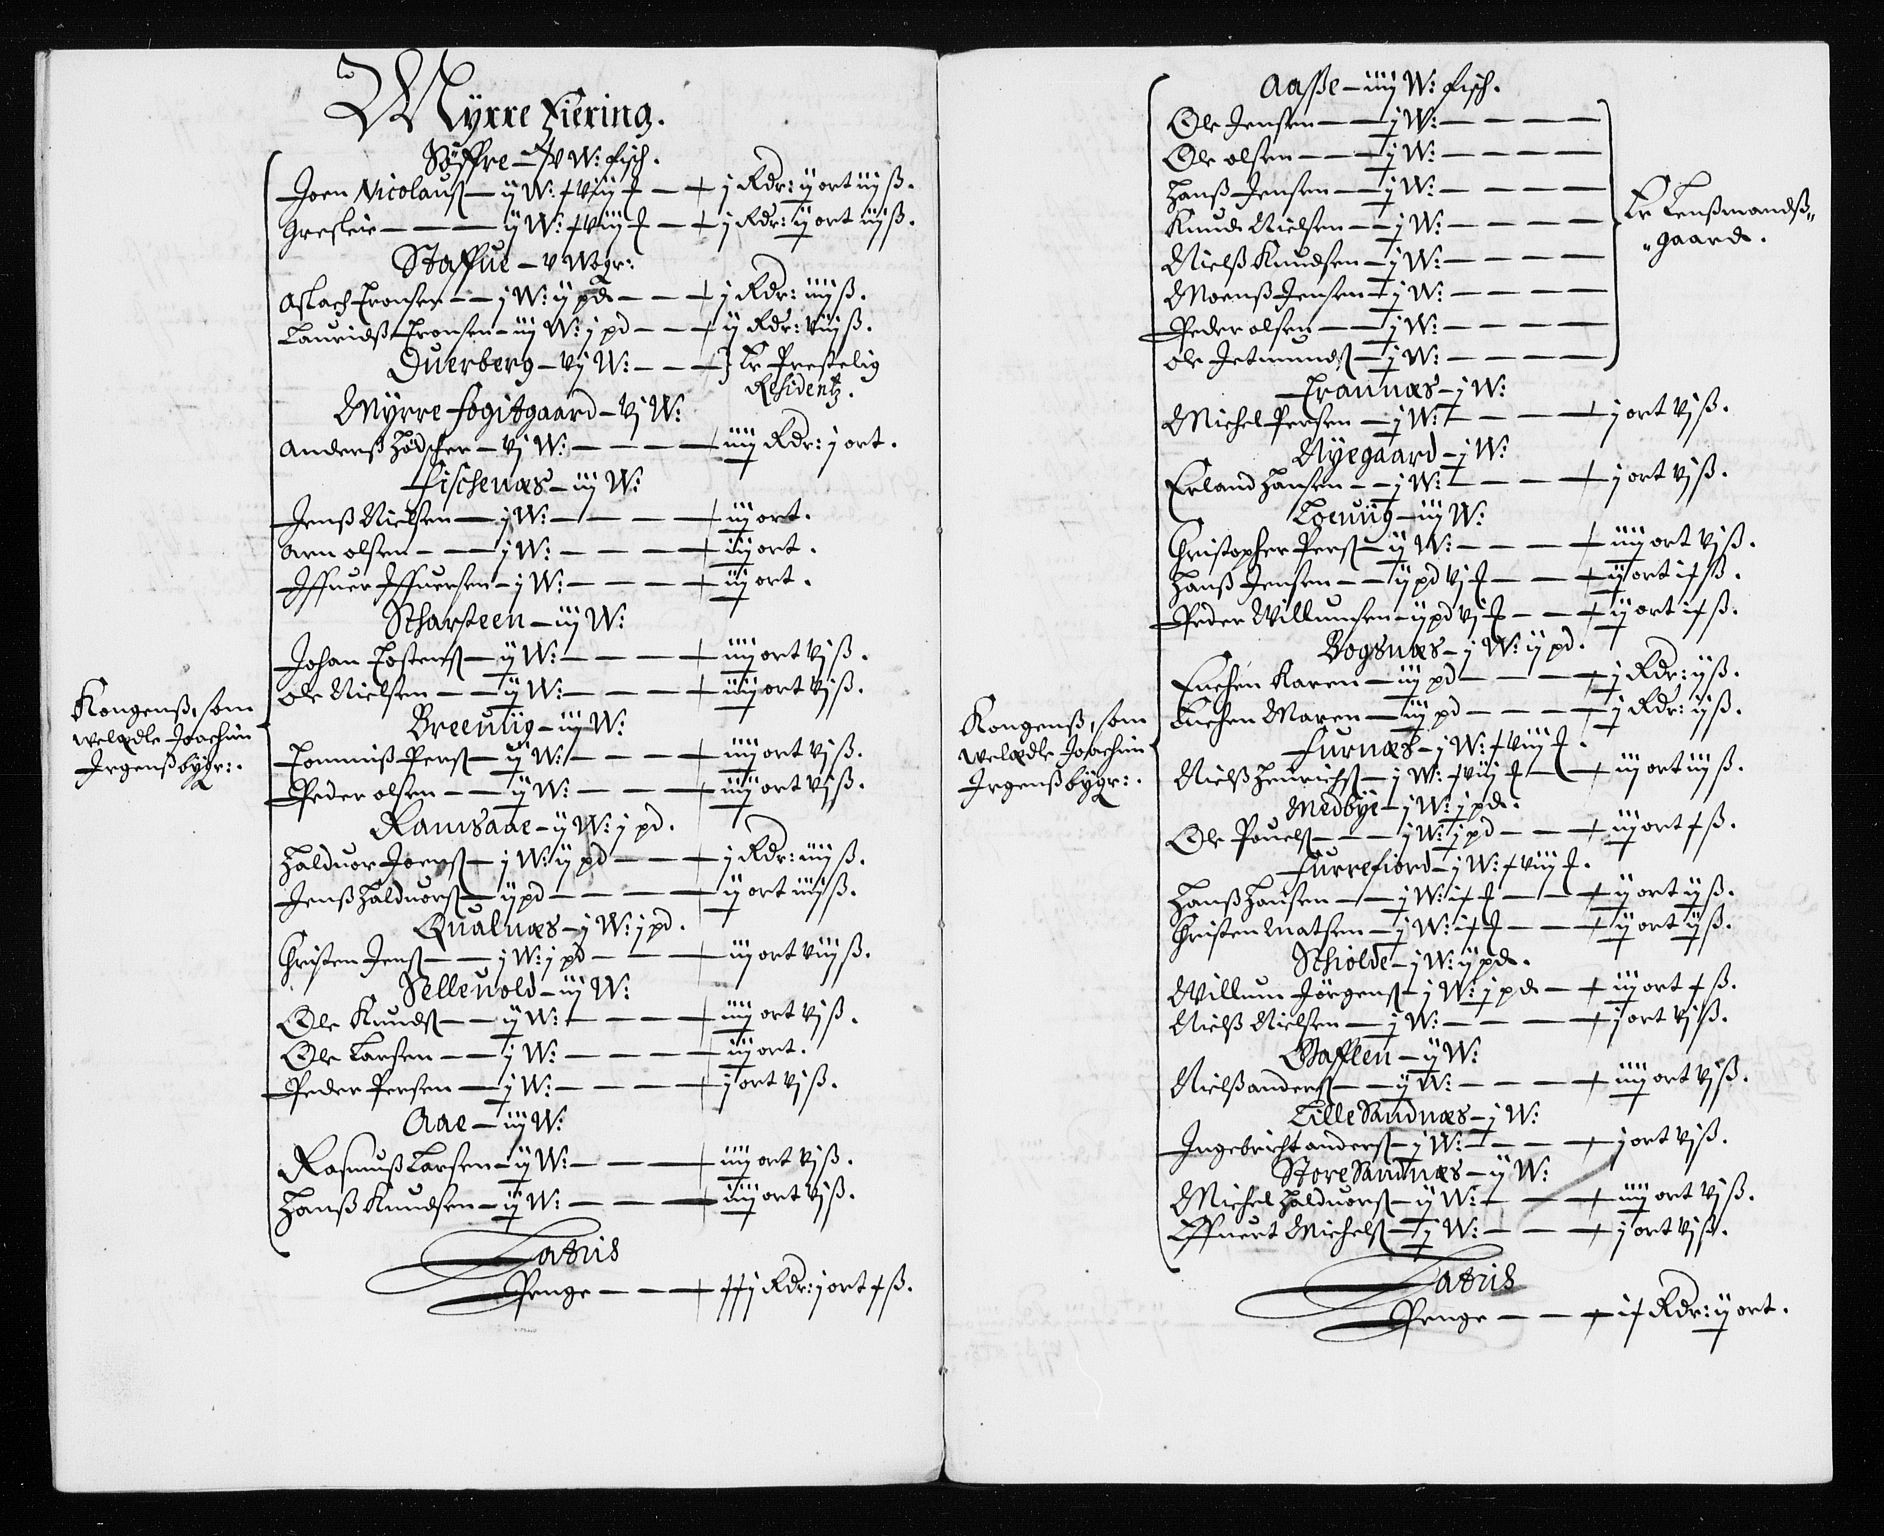 Myrre Fiering.
Søffre – v W: fisch.
Joen Nicolauß – ij W: – j Rdr: ij ort iiij ß.
Greſleie – – – ij W: – j Rdr: ij ort iiij ß.
Staffue – v Wogr:
Aslach Tronsen – – j W: ij pd – – j Rdr: iiij ß.
Lauridß Tronsen – iij W: j pd – – ij Rdr: viij ß.
Duerberg – vj W: – – – } Er Prestelig
Residentz.
Myrre fogitgaard – vj W:
Anderß – vj W: – – – – iiij Rdr: j ort.
Fischenæs – iij W:
Jenß Nielsen – j W: – – – – iij ort.
Arn olsen – – – j W: – – – – iij ort.
Iffuer Iffuersen – j W: – – – – iij ort.
Scharsteen – iiij W:
Johan Tostenß – ij W: – – – – iiij ort vj ß.
Ole Nielsen – – ij W: – – – – iiij ort vj ß.
Kongenß, som
welædle Joachim
Irgenß bÿgr:.
Breeuiig – iiij W:
Tommiß Perß – ij W: – – – iiij ort vj ß.
Peder olsen – – ij W: – – – iiij ort vj ß.
Ramsaae – ij W: j pd.
Halduor Joenß – j W: ij pd – – – j Rdr: iiij ß.
Jenß Halduorß – ij pd – – – – ij ort iiij ß.
Qualnæs – j W: j pd.
Christen Jenß – – j W: j pd – – – iij ort viij ß.
Selleuold – iiij W:
Ole Knudß – – ij W: – – – – iiij ort vj ß.
Ole Larsen – – j W: – – – – iij ort.
Peder Persen – j W: – – – – j ort vj ß.
Aae – iiij W:
Rasmuß Larsen – ij W: – – – iiij ort vj ß.
Hanß Knudsen – ij W: – – – iiij ort vj ß.
Latris
Penge – – – xxj Rdr: j ort x ß.
Aasse – iiij W: fisch.
Ole Jensen – – j W: – – – –
Ole olsen – – – j W: – – – –
Hanß Jensen – – j W: – – – –
Knud Nielsen – – j W: – – – –
Nielß Knudsen – j W: – – – –
Moenß Jensen – j W: – – – –
Peder olsen – – j W: – – – –
Ole Jetmundß – j W: – – – –
Er Lenßmandß„
„gaard.
Trannæs – j W:
Michel Persen – j W: – – – j ort vj ß.
Nyegaard – j W:
Erland Hansen – – j W: – – – j ort vj ß.
Loeuiig – iij W:
Christopher Perß – ij W: – – – iiij ort vj ß.
Hanß Jensen – – ij pd vj – – – ij ort ix ß.
Peder Willumsen – ij pd vj – – ij ort ix ß.
Bogsnæs – j W: ij pd.
Enchen Karen – iij pd – – – – j Rdr: ij ß.
Enchen Maren – iij pd – – – – j Rdr: ij ß.
Kongenß, som
welædle Joachim
Irgenß bÿgr:.
Furnæs – j W: xviij.
Nielß Henrichß – j W: xviij – – iij ort iij ß.
Medbÿe – j W: j pd.
Ole Pouelß – – – j W: j pd – – – iij ort x ß.
Furrefiord – j W: xviij.
Hanß Hansen – – j W: ix – – – ij ort ij ß.
Christen Matsen – j W: ix – – – ij ort ij ß.
Schiolde – j W: ij pd.
Willum Jörgenß – j W: j pd – – iij ort x ß.
Nielß Nielsen – – j W: – – – – j ort vj ß.
Gafflen – ij W:
Nielß anderß – – ij W: – – – – iiij ort vj ß.
Lille Sandnæs – j W:
Ingebricht anderß – j W: – – – j ort vj ß.
Store Sandnæs – ij W:
Michel Halduorß – ij W: – – – iiij ort vj ß.
Effuert Michelß – j W: – – – j ort vj ß.
Latris
Penge – – – ix Rdr: ij ort.